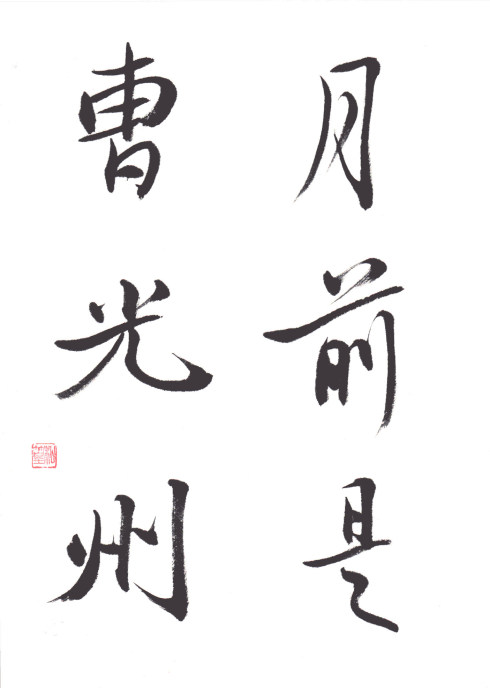 月前是
曹光州